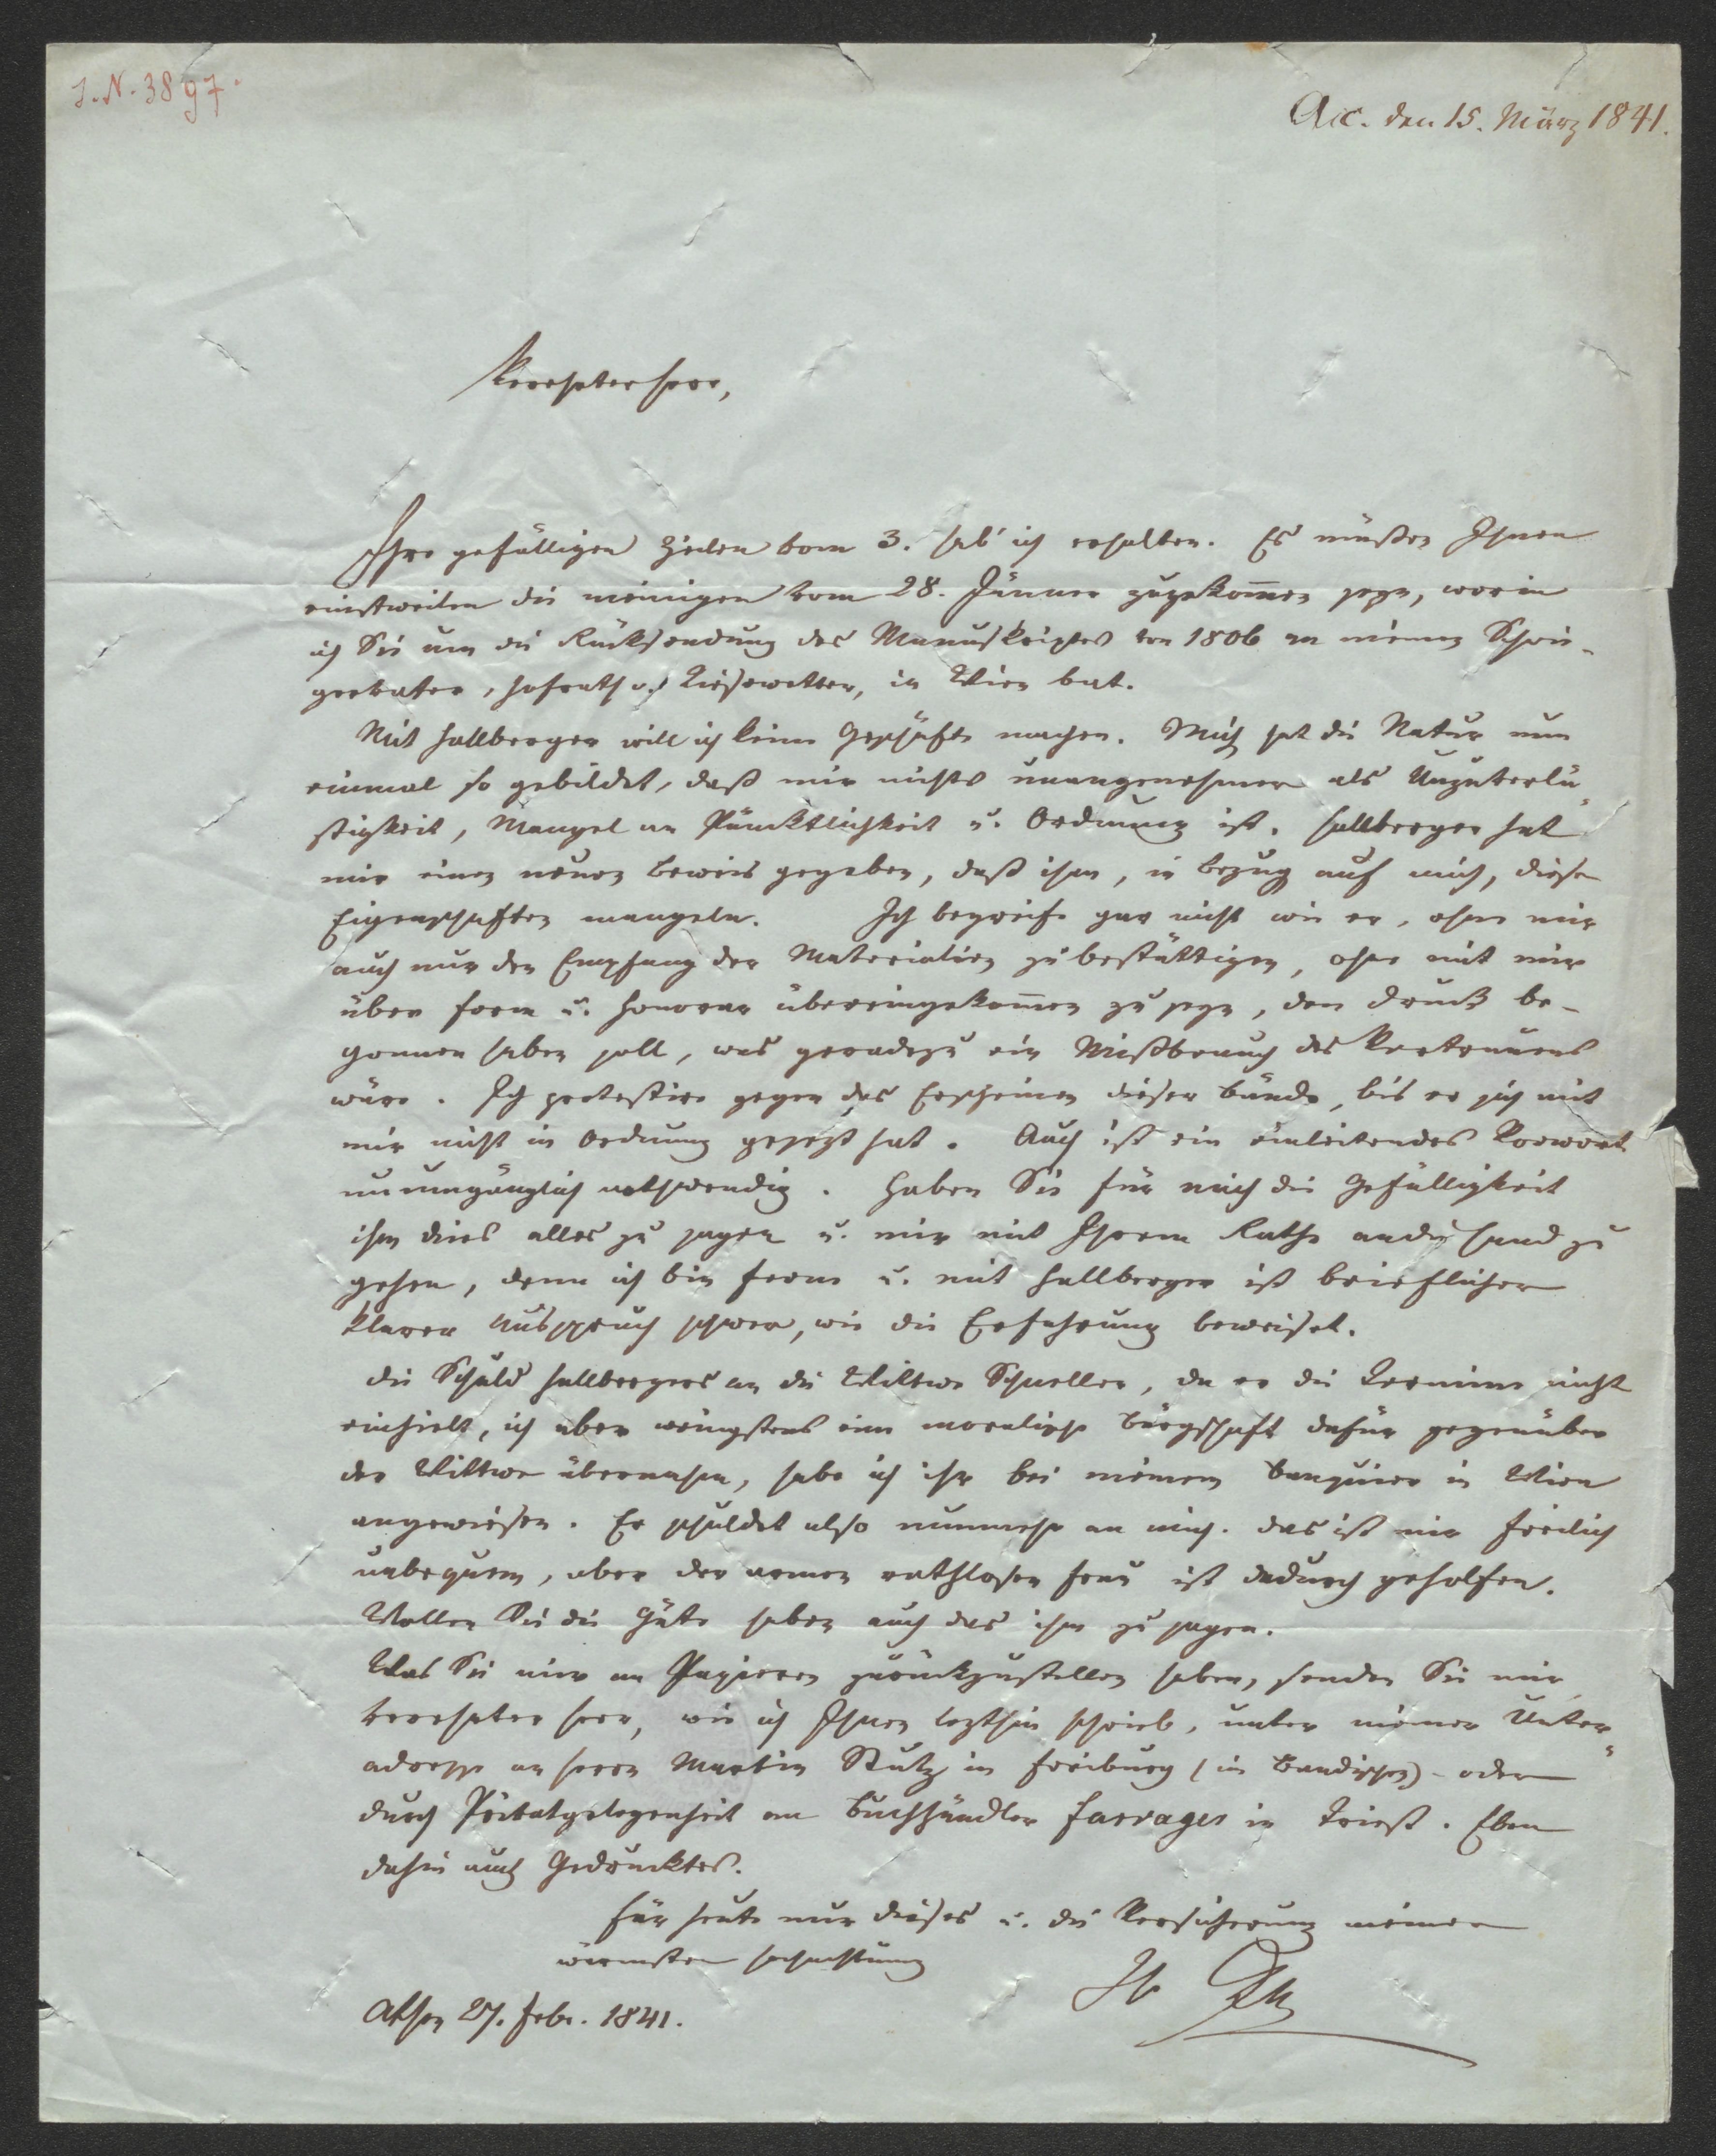 I.N. 3897.
Acc. den 15. März 1841.
Verehrter Herr,
Ihre gefälligen Zeilen vom 3. hab' ich erhalten. Es müßen Ihnen
einstweilen die meinigen vom 28. Jänner zugekom̅en seyn, worin
ich Sie um die Rücksendung des Manuskriptes von 1806 an meinen Schwie-
gervater, Hofrath v. Kiesewetter, in Wien bat.
Mit Hallberger will ich keine Geschäfte machen. Mich hat die Natur nun
einmal so gebildet, daß mir nichts unangenehmer als Unzuverlä-
ßigkeit, Mangel an Pünktlichkeit u. Ordnung ist. Hallberger hat
mir einen neuen Beweis gegeben, daß ihm, in Bezug auf mich, diese
Eigenschaften mangeln. Ich begreife gar nicht wie er, ohne mir
auch nur den Empfang der Materialien zu bestättigen, ohne mit mir
über Form u. Honorar übereingekom̅en zu seyn, den Druck be-
gonnen haben soll, was geradezu ein Mißbrauch des Vertrauens
wäre. Ich protestire gegen das Erscheinen dieser Bände, bis er sich mit
mir nicht in Ordnung gesezt hat. Auch ist ein einleitendes Vorwort
unumgänglich nothwendig. Haben Sie für mich die Gefälligkeit
ihm dies alles zu sagen u. mir mit Ihrem Rathe an die Hand zu
gehen, denn ich bin ferne u. mit Hallberger ist brieflicher
klarer Ausspruch schwer, wie die Erfahrung beweiset.
Die Schuld Hallbergers an die Wittwe Schneller, da er die Termine nicht
einhielt, ich aber wenigstens eine moralische Bürgschaft dafür gegenüber
der Wittwe übernahm, habe ich ihr bei meinem Banquier in Wien
angewiesen. Er schuldet also nunmehr an mich. Das ist mir freilich
unbequem, aber der armen rathlosen Frau ist dadurch geholfen.
Wollen Sie die Güte haben auch das ihm zu sagen.
Was Sie mir an Papieren zurückzustellen haben, senden Sie mir,
verehrter Herr, wie ich Ihnen lezthin schrieb, unter meiner Unter-
adresse an Herrn Martin Stutz in Freiburg (in Badischen) - oder
durch Privatgelegenheit an Buchhändler Favrager in Triest. Eben
dahin auch Gedrucktes.
Für heute nur dieses u. die Versicherung meiner
wärmsten Hochachtung
Athen 27. Febr. 1841.